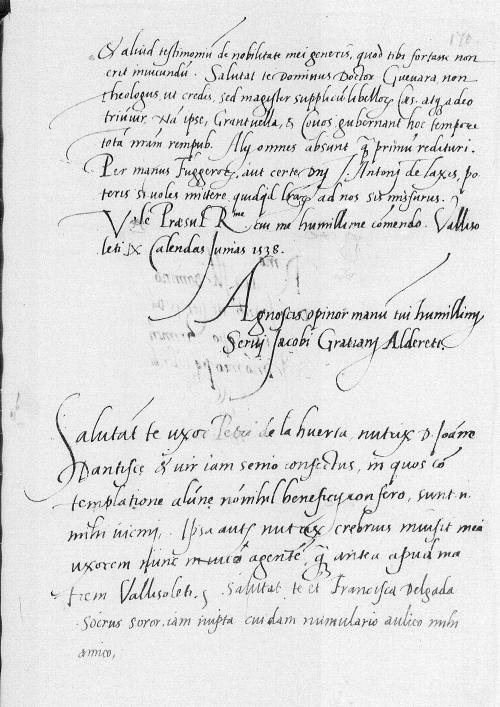 & aliud testimoniũ de nobilitate mei generis, quod tibi fortasse non
erit iniucundũ. Salutat te Dominus Doctor Guevara non
theologus, ut credis, sed magister supplicũ libellorũ Caes. atq adeo
triũvir. Nã ipse, Grantvella, & Covos gubernant hoc tempore
totã nrãm rempub. Alij omnes absunt q̃ primũ redituri.
Per manus Fuggerorũ, aut certe Dnj J. Antonij de Taxis, po
teris si voles mittere, quidqd lrarũ ad nos sis missurus.
Vale Praesul R.me cui me humillime cõmendo. Valliso
leti IX Calendas Junias 1538.
Agnoscis opinor manũ tui humillimj
Servj Jacobi Gratianj Alderetj.
Salutat te uxor Petri de la huerta, nutrix D. Joãne
Dantiscę & vir iam senio confectus, in quos cõ
templatione alũnę nõnihil beneficij confero, sunt n.
mihi vicinj. Ipsa autẽ nutrix crebrius invisit meã
uxorem nunc mecũ agentẽ, q̃ antea apud ma
trem Vallisoleti. Salutat te et Francisca Delgada
Socrus soror, iam nupta cuidam numulario aulico mihi
amico,